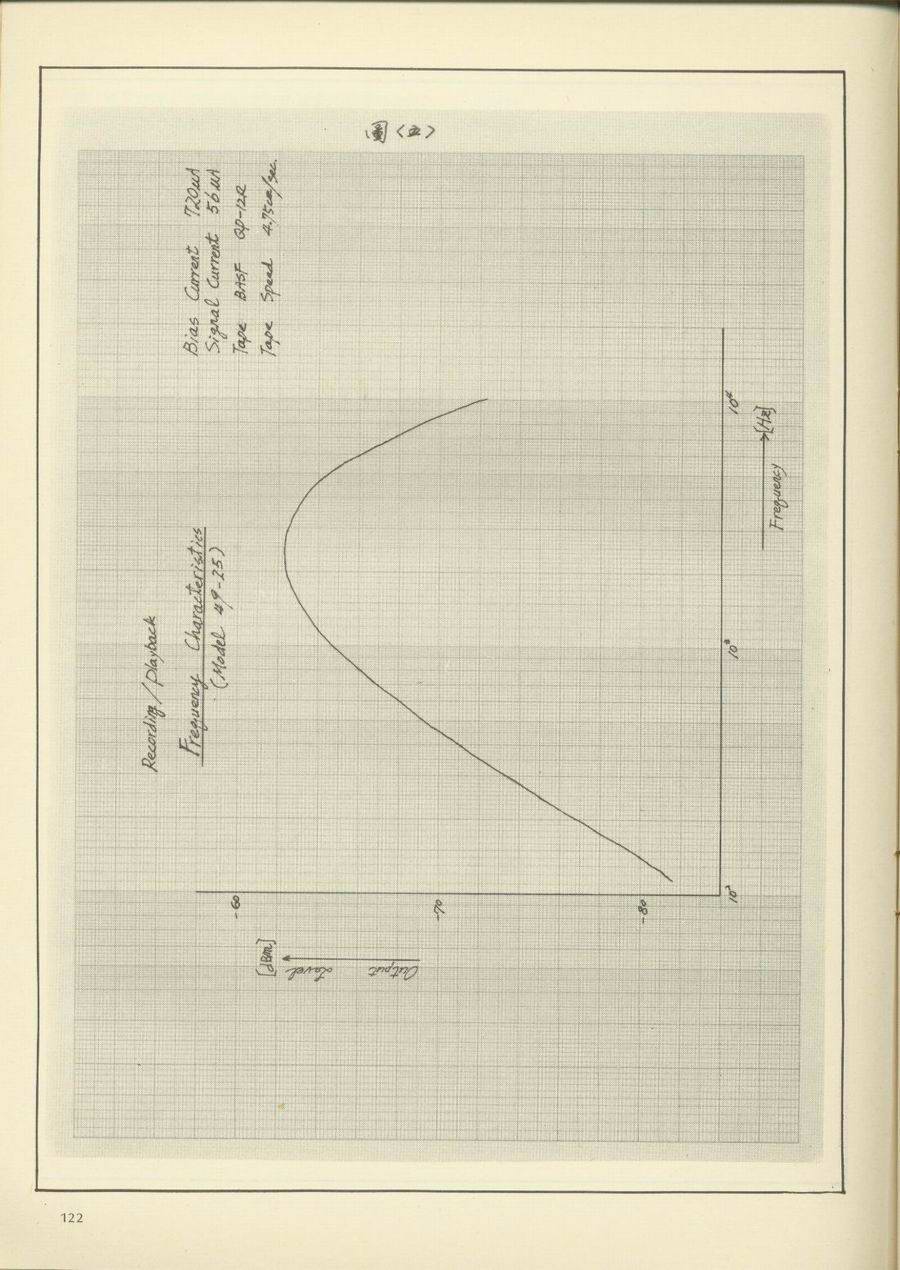 Recording/Playback
Frequency Characteristics
(Model 49-25)
Bias Current 720μA
Signal Current 56μA
Tape BASF QP-12R
Tape Speed 4.75cm/sec.
[dBm]
Output Level
-60
-70
-80
10²
10³
10⁴
Frequency [Hz]
122